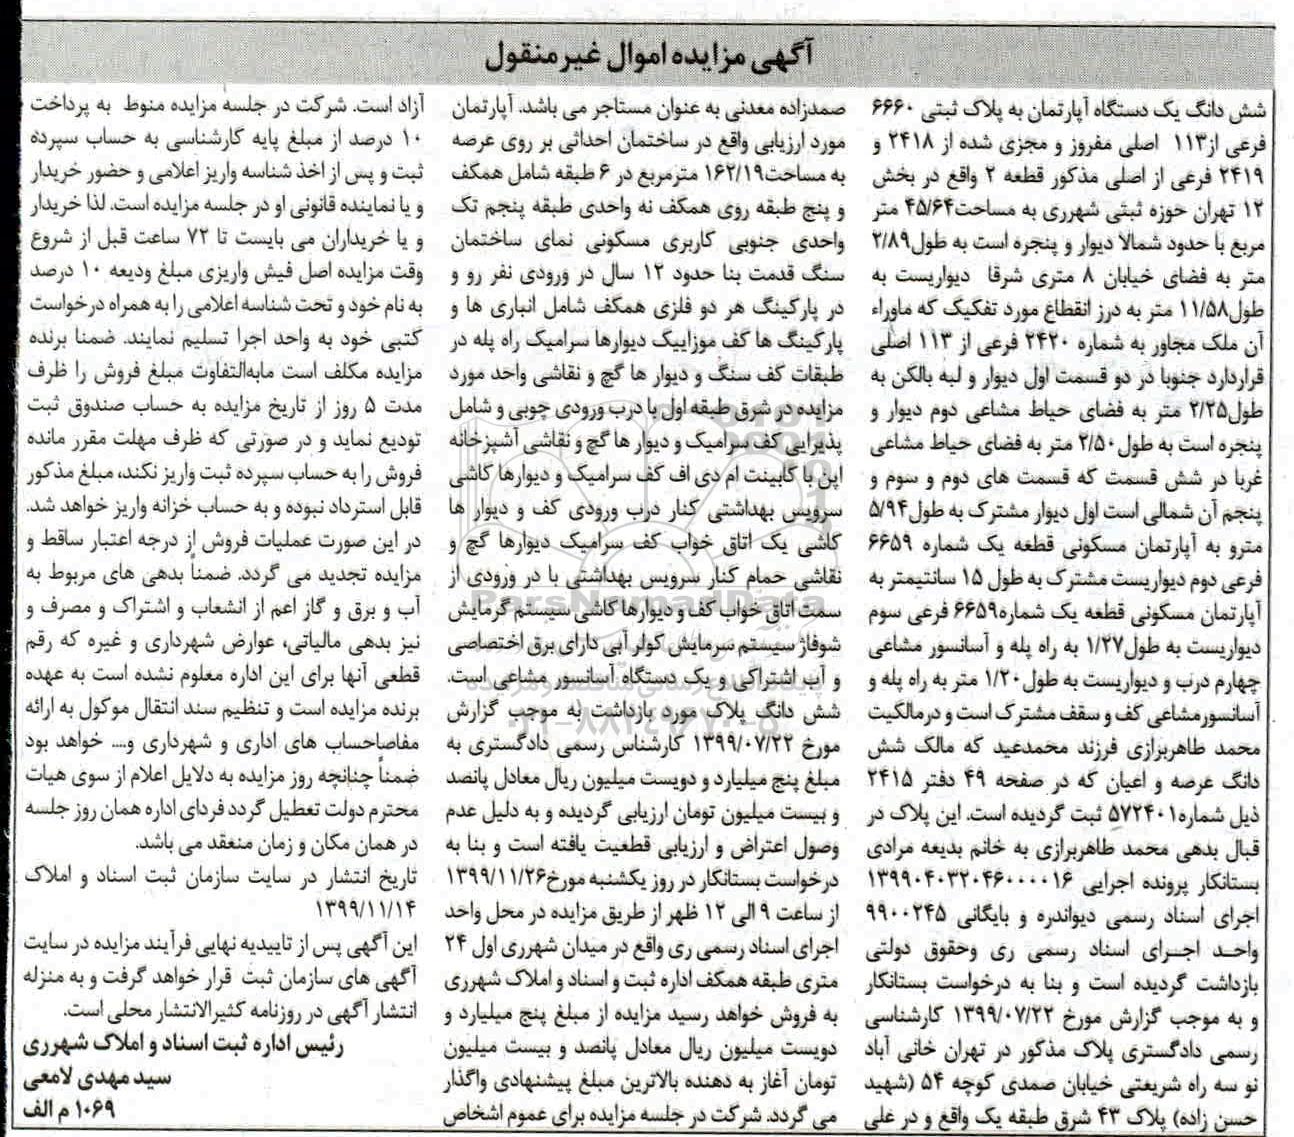 آگهی مزایده اموال غیر منقول
شش دانگ یک دستگاه آپارتمان به پلاک ثبتی ۶۶۶۰
فرعی از۱۱۳ اصلی مفروز و مجزی شده از ۲۴۱۸ و
۲۴۱۹ فرعی از اصلی مذکور قطعه ۲ واقع در بخش
۱۲ تهران حوزه ثبتی شهرری به مساحت۴۵/۶۴ متر
مربع با حدود شمالا دیوار و پنجره است به طول۲/۸۹
متر به فضای خیابان ۸ متری شرقا دیواریست به
طول۱۱/۵۸ متر به درز انقطاع مورد تفکیک که ماوراء
آن ملک مجاور به شماره ۲۴۲۰ فرعی از ۱۱۳ اصلی
قراردارد جنوبا در دو قسمت اول دیوار و لبه بالکن به
طول۲/۲۵ متر به فضای حیاط مشاعی دوم دیوار و
پنجره است به طول۲/۵۰ متر به فضای حیاط مشاعی
غربا در شش قسمت که قسمت های دوم و سوم و
پنجم آن شمالی است اول دیوار مشترک به طول۵/۹۴
مترو به آپارتمان مسکونی قطعه یک شماره ۶۶۵۹
فرعی دوم دیواریست مشترک به طول ۱۵ سانتیمتر به
آپارتمان مسکونی قطعه یک شماره۶۶۵۹ فرعی سوم
دیواریست به طول۱/۲۷ به راه پله و آسانسور مشاعی
چهارم درب و دیواریست به طول۱/۲۰ متر به راه پله و
آسانسورمشاعی کف و سقف مشترک است و درمالکیت
محمد طاهربرازی فرزند محمدعید که مالک شش
دانگ عرصه و اعیان که در صفحه ۴۹ دفتر ۲۴۱۵
ذیل شماره۵۷۲۴۰۱ ثبت گردیده است. این پلاک در
قبال بدهی محمد طاهربرازی به خانم بدیعه مرادی
بستانکار پرونده اجرایی ۱۳۹۹۰۴۰۳۲۰۴۶۰۰۰۰۱۶
اجرای اسناد رسمی دیواندره و بایگانی ۹۹۰۰۲۴۵
واحد اجرای اسناد رسمی ری وحقوق دولتی
بازداشت گردیده است و بنا به درخواست بستانکار
و به موجب گزارش مورخ ۱۳۹۹/۰۷/۲۲ کارشناسی
رسمی دادگستری پلاک مذکور در تهران خانی آباد
نو سه راه شریعتی خیابان صمدی کوچه ۵۴ (شهید
حسن زاده) پلاک ۴۳ شرق طبقه یک واقع و در علی
صمدزاده معدنی به عنوان مستاجر می باشد. آپارتمان
مورد ارزیابی واقع در ساختمان احداثی بر روی عرصه
به مساحت۱۶۲/۱۹ مترمربع در ۶ طبقه شامل همکف
و پنج طبقه روی همکف نه واحدی طبقه پنجم تک
واحدی جنوبی کاربری مسکونی نمای ساختمان
سنگ قدمت بنا حدود ۱۲ سال در ورودی نفر رو و
در پارکینگ هر دو فلزی همکف شامل انباری ها و
پارکینگ ها کف موزاییک دیوارها سرامیک راه پله در
طبقات کف سنگ و دیوار ها گچ و نقاشی واحد مورد
مزایده در شرق طبقه اول با درب ورودی چوبی و شامل
پذیرایی کف سرامیک و دیوار ها گچ و نقاشی آشپزخانه
اپن با کابینت ام دی اف کف سرامیک و دیوارها کاشی
سرویس بهداشتی کنار درب ورودی کف و دیوار ها
کاشی یک اتاق خواب کف سرامیک دیوارها گچ و
نقاشی حمام کنار سرویس بهداشتی با در ورودی از
سمت اتاق خواب کف و دیوارها کاشی سیستم گرمایش
شوفاژ سیستم سرمایش کولر آبی دارای برق اختصاصی
و آب اشتراکی و یک دستگاه آسانسور مشاعی است.
شش دانگ پلاک مورد بازداشت به موجب گزارش
مورخ ۱۳۹۹/۰۷/۲۲ کارشناس رسمی دادگستری به
مبلغ پنج میلیارد و دویست میلیون ریال معادل پانصد
و بیست میلیون تومان ارزیابی گردیده و به دلیل عدم
وصول اعتراض و ارزیابی قطعیت یافته است و بنا به
درخواست بستانکار در روز یکشنبه مورخ۱۳۹۹/۱۱/۲۶
از ساعت ۹ الی ۱۲ ظهر از طریق مزایده در محل واحد
اجرای اسناد رسمی ری واقع در میدان شهرری اول ۲۴
متری طبقه همکف اداره ثبت و اسناد و املاک شهرری
به فروش خواهد رسید مزایده از مبلغ پنج میلیارد و
دویست میلیون ریال معادل پانصد و بیست میلیون
تومان آغاز به دهنده بالاترین مبلغ پیشنهادی واگذار
می گردد. شرکت در جلسه مزایده برای عموم اشخاص
آزاد است. شرکت در جلسه مزایده منوط به پرداخت
۱۰ درصد از مبلغ پایه کارشناسی به حساب سپرده
ثبت و پس از اخذ شناسه واریز اعلامی و حضور خریدار
و یا نماینده قانونی او در جلسه مزایده است. لذا خریدار
و یا خریداران می بایست تا ۷۲ ساعت قبل از شروع
وقت مزایده اصل فیش واریزی مبلغ ودیعه ۱۰ درصد
به نام خود و تحت شناسه اعلامی را به همراه درخواست
کتبی خود به واحد اجرا تسلیم نمایند. ضمنا برنده
مزایده مکلف است مابه‌التفاوت مبلغ فروش را ظرف
مدت ۵ روز از تاریخ مزایده به حساب صندوق ثبت
تودیع نماید و در صورتی که ظرف مهلت مقرر مانده
فروش را به حساب سپرده ثبت واریز نکند، مبلغ مذکور
قابل استرداد نبوده و به حساب خزانه واریز خواهد شد.
در این صورت عملیات فروش از درجه اعتبار ساقط و
مزایده تجدید می گردد. ضمناً بدهی های مربوط به
آب و برق و گاز اعم از انشعاب و اشتراک و مصرف و
نیز بدهی مالیاتی، عوارض شهرداری و غیره که رقم
قطعی آنها برای این اداره معلوم نشده است به عهده
برنده مزایده است و تنظیم سند انتقال موکول به ارائه
مفاصاحساب های اداری و شهرداری و.... خواهد بود
ضمناً چنانچه روز مزایده به دلایل اعلام از سوی هیات
محترم دولت تعطیل گردد فردای اداره همان روز جلسه
در همان مکان و زمان منعقد می باشد.
تاریخ انتشار در سایت سازمان ثبت اسناد و املاک
۱۳۹۹/۱۱/۱۴
این آگهی پس از تاییدیه نهایی فرآیند مزایده در سایت
آگهی های سازمان ثبت قرار خواهد گرفت و به منزله
انتشار آگهی در روزنامه کثیرالانتشار محلی است.
رئیس اداره ثبت اسناد و املاک شهرری
سید مهدی لامعی
۱۰۶۹ م الف
ParsNamadData
۰۲۱-۸۸۳۴۹۶۷۰-۵